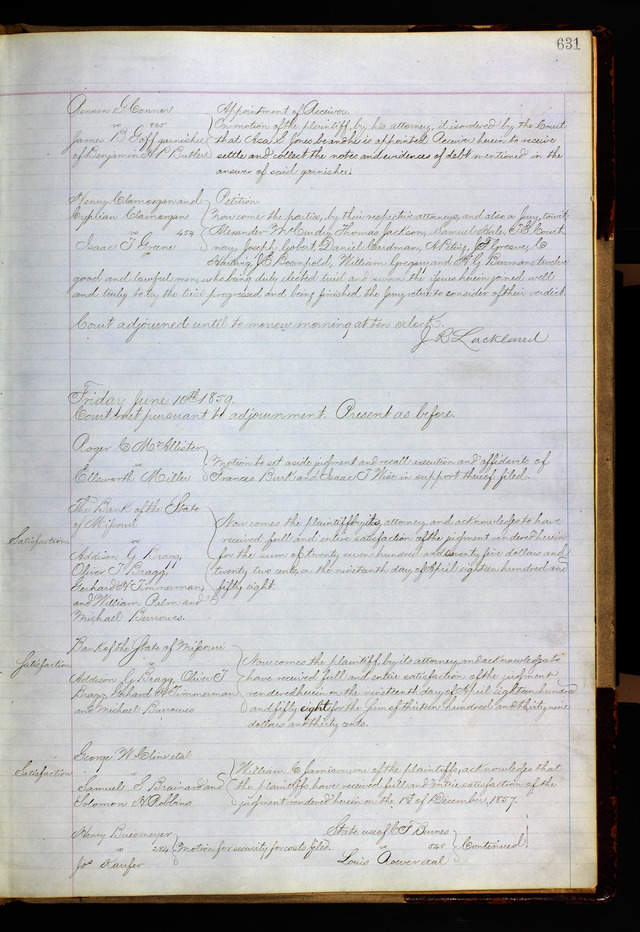 631
Appointment of Receiver.
vs
On motion of the plaintiff by his attorney, it is ordered by the Court
James B Goff garnishee
that Asa S Jones be and he is appointed Receiver herein to receive
of Benjamin Butler
settle and collect the notes and evidences of debt mentioned in the
answer of said garnishee.
Henry Clamorgan and
Petition.
Cyprian Clamorgan
Now come the parties, by their respective attorneys, and also a jury, towit,
vs 454
Alexander McCurdy, Thomas Jackson, Samuel Hale,
Isaac T Greene
Joseph Daniel J Greaves,
Harding, William Gregary and
good and lawful men, who being duly elected tried and sworn the issues herein joined well
and truly to try, the trial progressed and being finished the jury retire to consider of their verdict.
Court adjourned until tomorrow morning at ten o'clock.
J B Lackland
Friday June 10th 1859.
Court met pursuant to adjournment. Present as before.
Roger C McAllister
vs
Motion to set aside judgment and recall execution and affidavits of
Ellsworth Miller
Frances Burk and Isaac J Wise in support thereof filed.
The Bank of the State
of Missouri
Now comes the plaintiff by its attorney, and acknowledges to have
Satisfaction
vs
received full and entire satisfaction of the judgment rendered herein
Addison G Bragg,
for the sum of twenty seven hundred and seventy five dollars and
Oliver T Bragg,
twenty two cents, on the nineteenth day of April eighteen hundred and
Gerhard H Timmerman,
fifty eight.
and William Palm and
Michael Burrows.
Bank of the State of Missouri
Satisfaction
vs
Now comes the plaintiff, by its attorney and acknowledges to
Addison G Bragg, Oliver T
have received full and entire satisfaction of the judgment
Bragg, Gerhard H Timmerman
rendered herein on the nineteenth day of April eighteen hundred
and Michael Burrows
and fifty eight for the sum of thirteen hundred and thirty nine
dollars and thirty cents.
George W Cline et al
Satisfaction
vs
William C Jamison one of the plaintiffs, acknowledges that
Samuel S Brainard and
the plaintiffs have received full and entire satisfaction of the
Solomon H Robbins
judgment rendered herein on the 1st of December, 1857.
Henry
vs 284
Motion for security for costs filed.
Jos Kaufer
State use of C F
vs 548
Continued
Louis